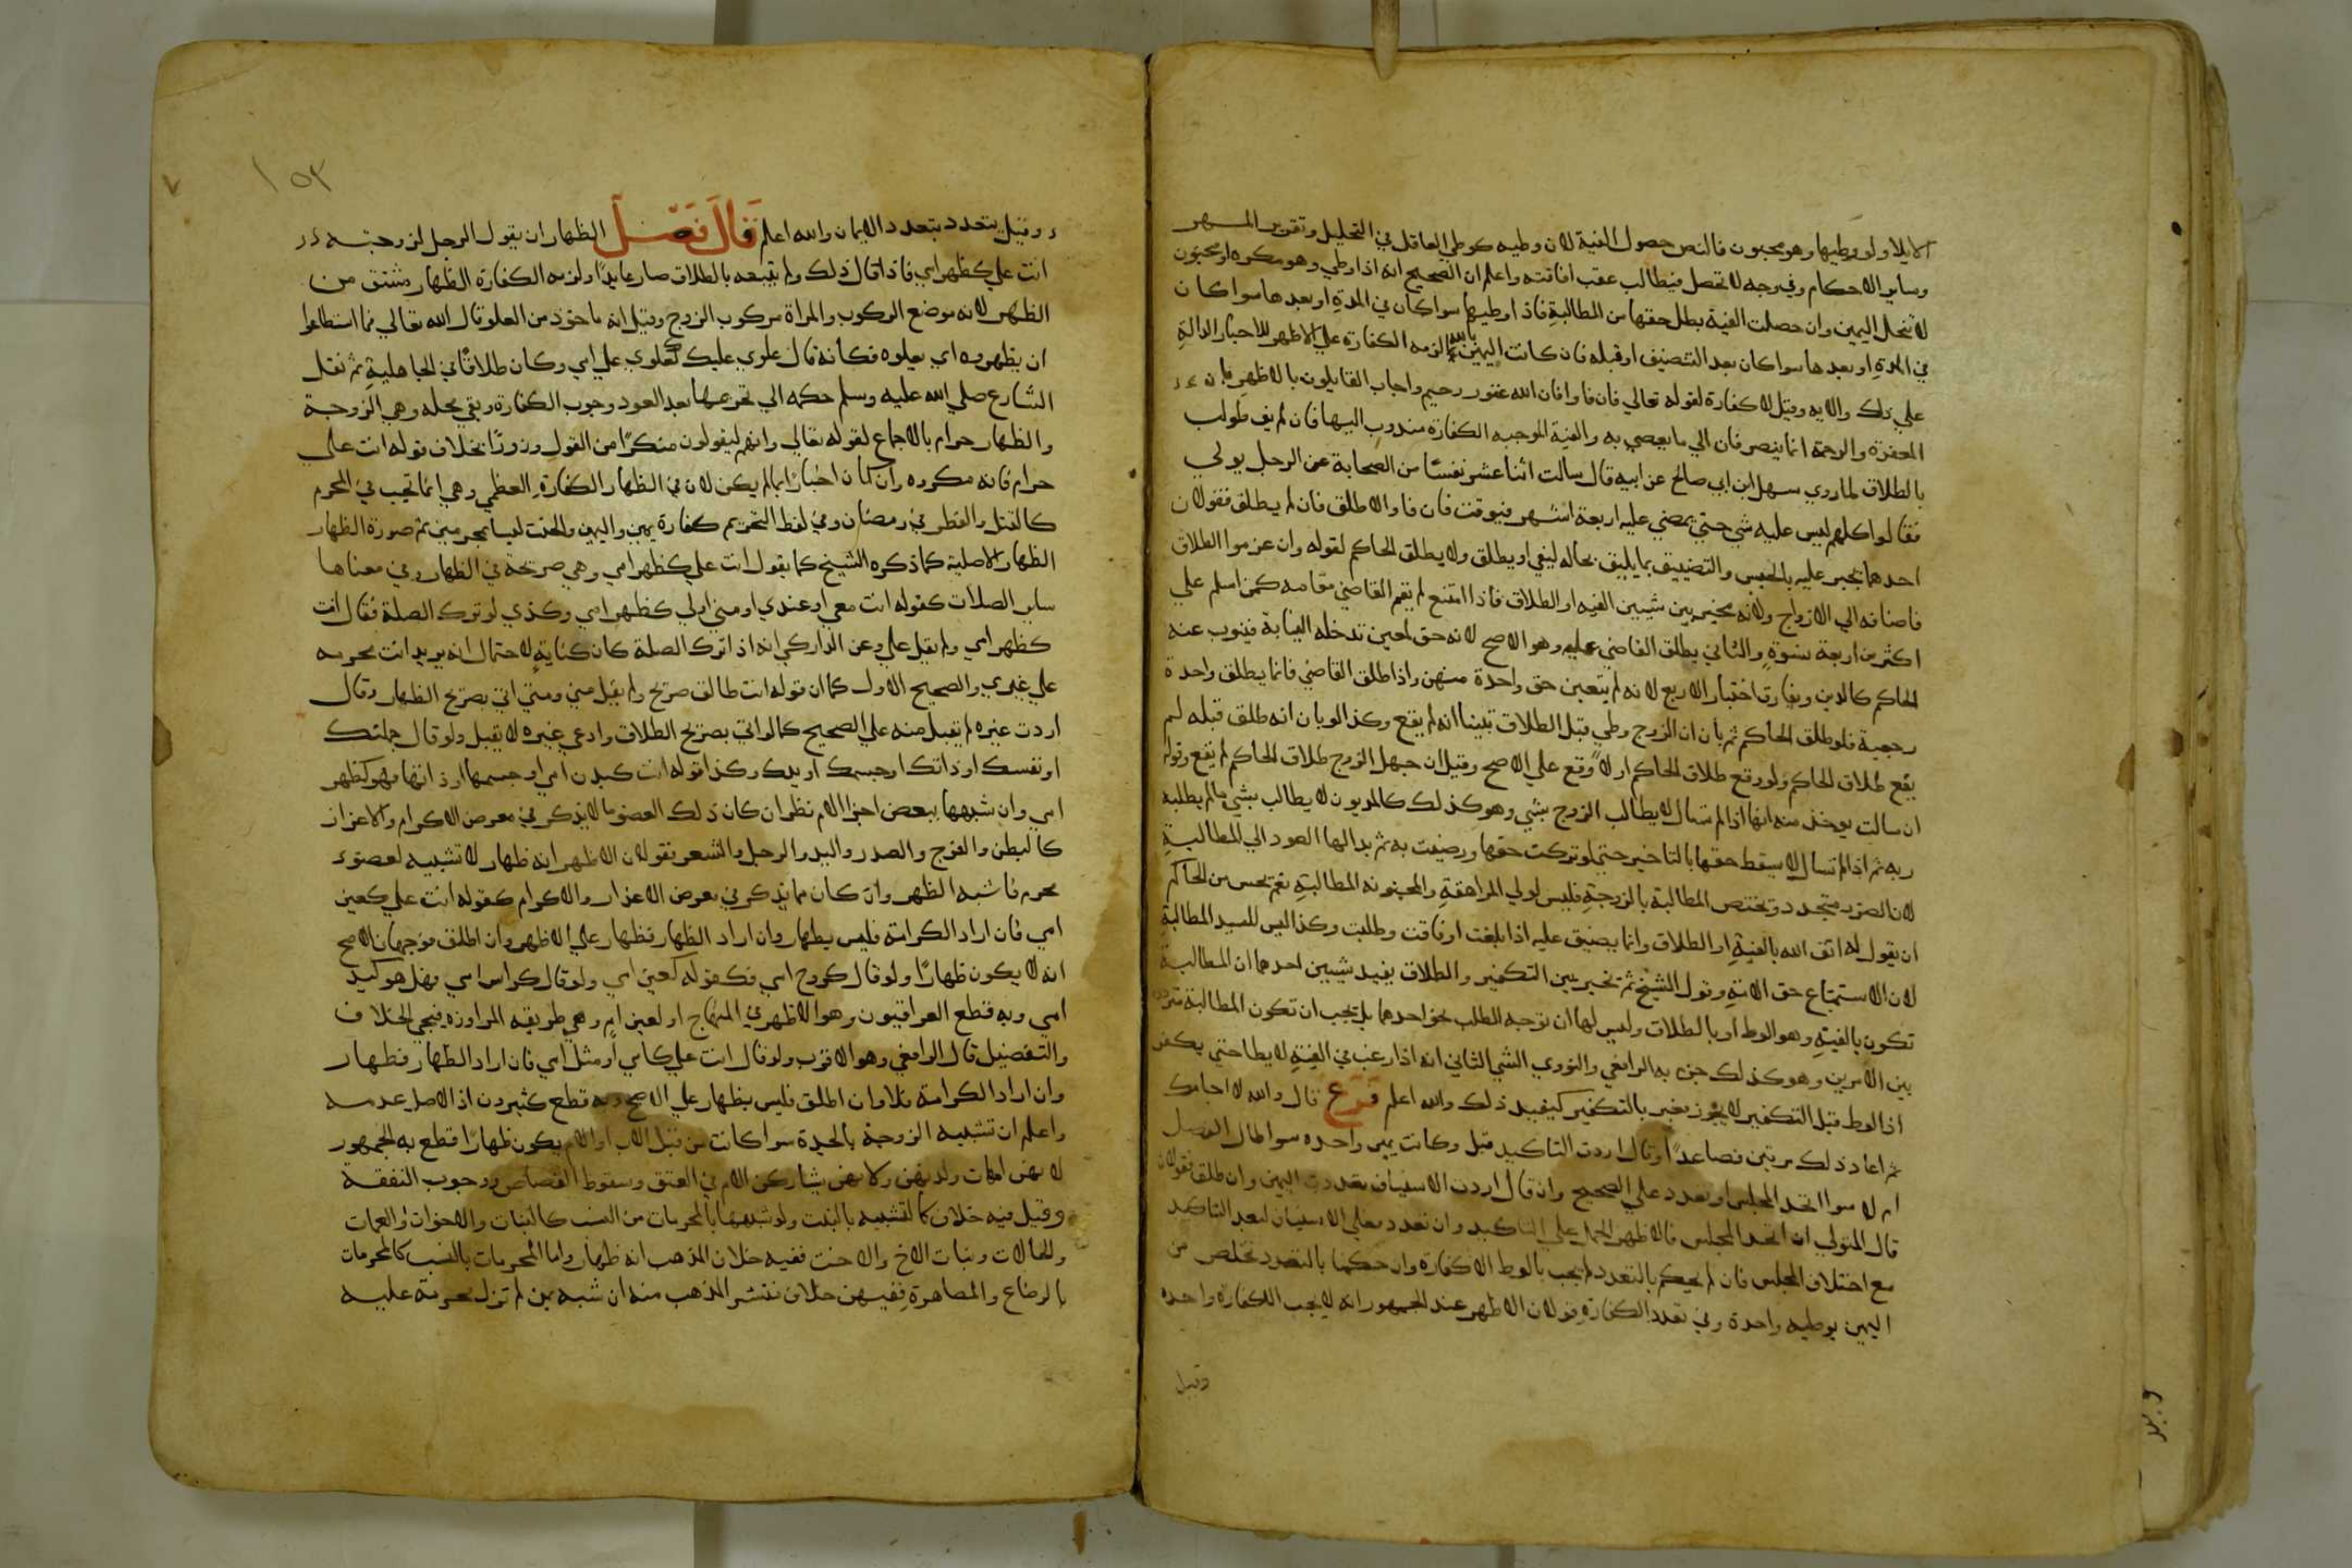 الايلا ولو وطيها وهو مجنون فالنص حصول الفية لان وطيه كوطي العاقل في التحليل وتقرير المهر
وساير الاحكام وفي وجه لا تحصل فيطالب عقب افاقته واعلم ان الصحيح انه اذا وطي وهو مكره او مجنون
لا تنحل اليمين وان حصلت الفية بطل حقها من المطالبة فاذا وطيها سوا كان في المدة او بعدها سوا كان
في المدة او بعدها سوا كان بعد التضيق او قبله فان كانت اليمين بالله لزمه الكفارة علي الاظهر للاخبار الدالة
علي ذلك والايه وقيل لا كفارة لقوله تعالي فان فاوا فان الله غفور رحيم واجاب القايلون بالاظهر بان
المغفرة والرحمة انما ينصرفان الي ما يعصي به والفية الموجبه الكفارة مندوب اليها فان لم يف طولب
بالطلاق لما روي سهل ابن ابي صالح عن ابيه قال سالت اثنا عشر نفسًا من الصحابة عن الرجل يولي
فقالوا كلهم ليس عليه شي حتي يمضي عليه اربعة اشهر فيوقف فان فا والا طلق فان لم يطلق فقولان
احدهما يجبر عليه بالحبس والتضييق بما يليق بحاله ليفي او يطلق ولا يطلق الحاكم لقوله وان عزموا الطلاق
فاضافه الي الازواج ولانه مخير بين شيين الفيه او الطلاق فاذا امتنع لم يقم القاضي مقامه كمن اسلم علي
اكثر من اربعة نسوة والثاني يطلق القاضي عليه وهو الاصح لانه حق لمعين تدخله النيابة فينوب عنه
الحاكم كالدين ويفارق اختيار الاربع لانه لم يتعين حق واحدة منهن واذا طلق القاضي فانما يطلق واحدة
رجعية فلو طلق الحاكم ثم بان ان الزوج وطي قبل الطلاق تبينا انه لم يقع وكذا لو بان انه طلق قبله لم
يقع طلاق الحاكم ولو وقع طلاق الحاكم اولاً وقع علي الاصح وقيل ان جهل الزوج طلاق الحاكم لم يقع وقوله
ان سالت يوخذ منه انها اذا لم تسال لا يطالب الزوج بشي وهو كذلك كالمديون لا يطالب بشي ما لم يطلبه
ربه ثم اذا لم تسال لا يسقط حقها بالتاخير حتي لو تركت حقها ورضيت به ثم بدا لها العود الي المطالبة
لان الضرر متجدد وتختص المطالبة بالزوجة فليس لولي المراهقة والمجنونه المطالبة نعم تحسن من الحاكم
ان يقول له اتق الله بالفية او الطلاق وانما يضيق عليه اذا بلغت او فاقت وطلبت وكذا ليس للسيد المطالبة
لان الاستمتاع حق الامة وقول الشيخ ثم تخير بين التكفير والطلاق يفيد شيين احدهما ان المطالبة
تكون بالفية وهو الوط او بالطلاق وليس لها ان توجه الطلب نحو احدهما بل يجب ان تكون المطالبة مترددة
بين الامرين وهو كذلك جزم به الرافعي والنووي الشي الثاني انه اذا رغب في الفية لا يطا حتي يكفر
اذ الوط قبل التكفير لا يجوز بغير بالتكفير كيفيد ذلك والله اعلم فرع قال والله لا اجامعك
ثم اعاد ذلك مرتين فصاعدًا وقال اردت التاكيد قبل وكانت يمين واحده سوا طال الفصل
ام لا سوا اتحد المجلس او تعدد علي الصحيح وان قال اردت الاستيناف تعددت اليمين وان طلق فقولان
قال المتولي ان اتحد المجلس فالاظهر الحمل علي التاكيد وان تعدد فعلي الاستيناف لبعد التاكيد
مع اختلاف المجلس فان لم يحكم بالتعدد لم يجب بالوط الا كفارة وان حكمنا بالتعدد تخلص من
اليمين بوطيه واحدة وفي تعدد الكفارة قولان الاظهر عند الجمهور انه لا يجب الا كفارة واحده
وقيل
١٥٣
وقيل يتعدد بتعدد الايمان والله اعلم قال فصل الظهار ان يقول الرجل لزوجته
انت علي كظهر امي فاذا قال ذلك ولم يتبعه بالطلاق صار عايدًا ولزمه الكفارة الظهار مشتق من
الظهر لانه موضع الركوب والمراة مركوب الزوج وقيل انه ماخوذ من العلو قال الله تعالي فما اسطاعوا
ان يظهروه اي يعلوه فكانه قال علوي عليك كعلوي علي امي وكان طلاقًا في الجاهلية ثم نقل
الشارع صلي الله عليه وسلم حكمه الي تحريمها بعد العود ووجوب الكفارة وبقي محله وهي الزوجة
والظهار حرام بالاجماع لقوله تعالي وانهم ليقولون منكرًا من القول وزورًا بخلاف قوله انت علي
حرام فانه مكروه وان كان اخبارًا بما لم يكن لان في الظهار الكفارة العظمي وهي انما تجب في المحرم
كالقتل والفطر في رمضان وفي لفظ التحريم كفارة يمين واليمين والحنث ليسا بمحرمين ثم صورة الظهار
الظهار الاصلية كما ذكره الشيخ كما يقول انت علي كظهر امي وهي صريحة في الظهار وفي معناها
ساير الصلات كقوله انت معي او عندي او مني او لي كظهر امي وكذي لو ترك الصلة فقال انت
كظهر امي ولم يقل علي وعن الداركي انه اذا ترك الصلة كان كناية لاحتمال انه يريد انت محرمه
علي غيري والصحيح الاول كما ان قوله انت طالق صريح ولم يقيل مني ومتي اتي بصريح الظهار وقال
اردت غيره لم يقبل منه علي الصحيح كما لو اتي بصريح الطلاق وادعي غيره لا يقبل ولو قال جملتك
او نفسك او ذاتك او جسمك او بدنك وكذا قوله انت كبدن امي او جسمها او ذاتها فهو كظهر
امي وان شبهها ببعض اجزا الام نظر ان كان ذلك العضو ما لا يذكر في معرض الاكرام والاعزاز
كالبطن والفرج والصدر واليد والرجل والشعر فقولان الاظهر انه ظهار لانه تشبيه لعضو
محرم فاشبه الظهر وان كان مما يذكر في معرض الاعزاز والاكرام كقوله انت علي كعين
امي فان اراد الكرامة فليس بظهار وان اراد الظهار فظهار علي الاظهر وان اطلق فوجهان الاصح
انه لا يكون ظهارًا ولو قال كروح امي فكقوله كعين امي ولو قال كراس امي فهل هو كيد
امي وبه قطع العراقيون وهو الاظهر في المنهاج او لعين ام وهي طريقه المراوزه فيجي الخلاف
والتفضيل قال الرافعي وهو الاقرب ولو قال انت علي كامي او مثل امي فان اراد الظهار فظهار
وان اراد الكرامة فلا وان اطلق فليس بظهار علي الاصح وبه قطع كثيرون اذ الاصل عدمه
واعلم ان تشبيه الزوجة بالجدة سوا كانت من قبل الاب او الام يكون ظهارًا قطع به الجمهور
لانهن امهات ولدنهن ولانهن يشاركن الام في العتق وسقوط القصاص ووجوب النفقة
وقيل فيه خلاف كالتشبيه بالبنت ولو شبهها بالمحرمات من النسب كالبنات والاخوات والعمات
والخالات وبنات الاخ والاخت ففيه خلاف المذهب انه ظهار واما المحرمات بالنسب كالمحرمات
بالرضاع والمصاهرة ففيهن خلاف منتشر المذهب منه ان شبه بمن لم تزل محرمة عليه